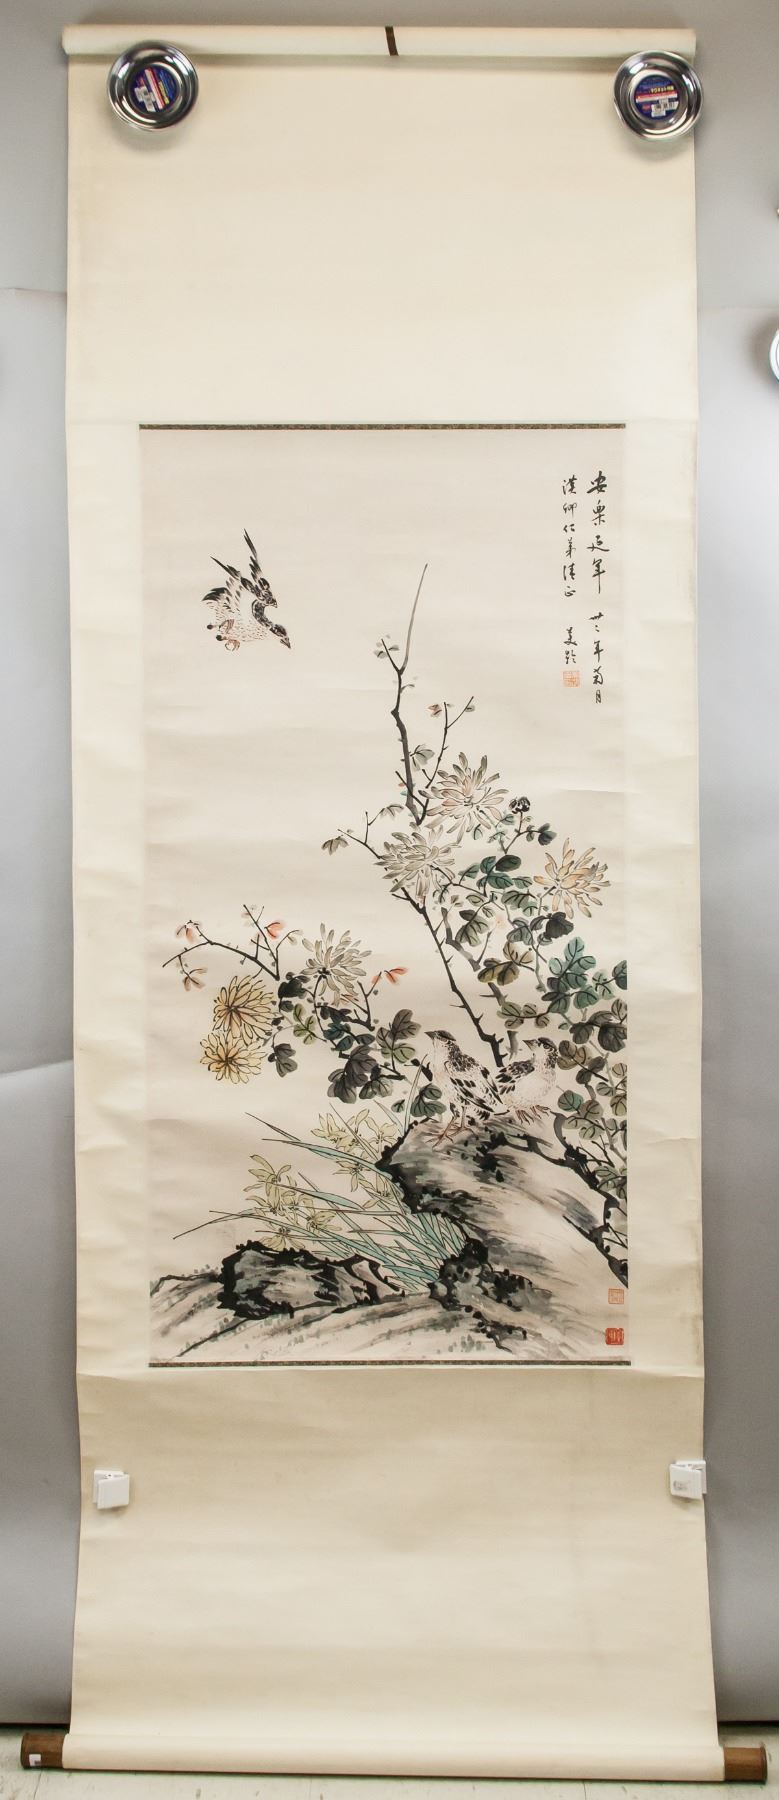 安樂延年 卅二年菊月
漢卿仁弟清正 美齡